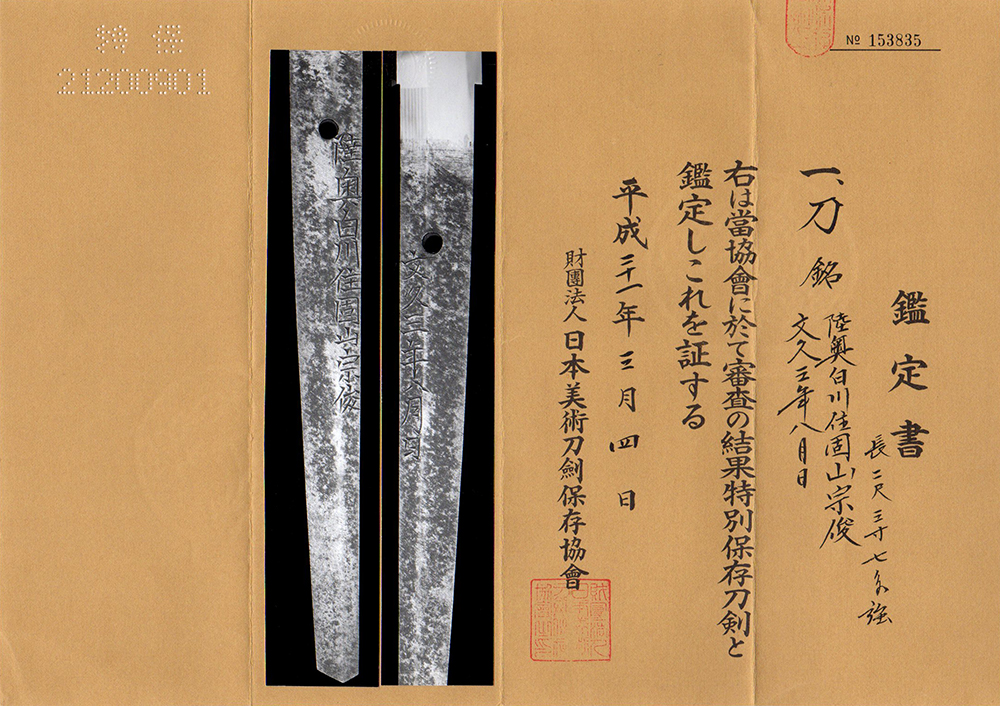 № 153835
鑑定書
一、刀 銘 陸奥白川住固山宗俊
文久三年八月日
長 二尺三寸七分強
右は當協會に於て審査の結果特別保存刀剣と
鑑定しこれを証する
平成三十一年三月四日
財團法人 日本美術刀劍保存協會
文久三年八月日
陸奥白川住固山宗俊
特保
21200901